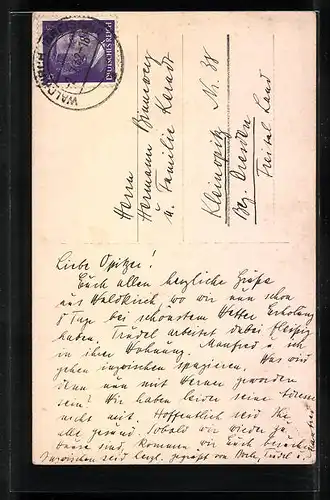 DEUTSCHES REICH
Herrn
Hermann
u. Familie
Kleinopitz Nr. 38
Bez. Dresden
Freital Land
Liebe Opitzer!
Euch allen herzliche Grüße
aus Waldkirch, wo wir nun schon
8 Tage bei schönstem Wetter Erholung
haben. Trudel arbeitet dabei fleißig
in ihrer Wohnung. Manfred u. ich
gehen inzwischen spazieren. Was wird
denn nun mit Werner geworden
sein? Wir haben leider seine
nicht mit. Hoffentlich seid Ihr
alle gesund. Sobald wir wieder zu
hause sind, kommen wir Euch besuchen.
Inzwischen seid herzl. gegrüßt von Trudel u.
Manfred